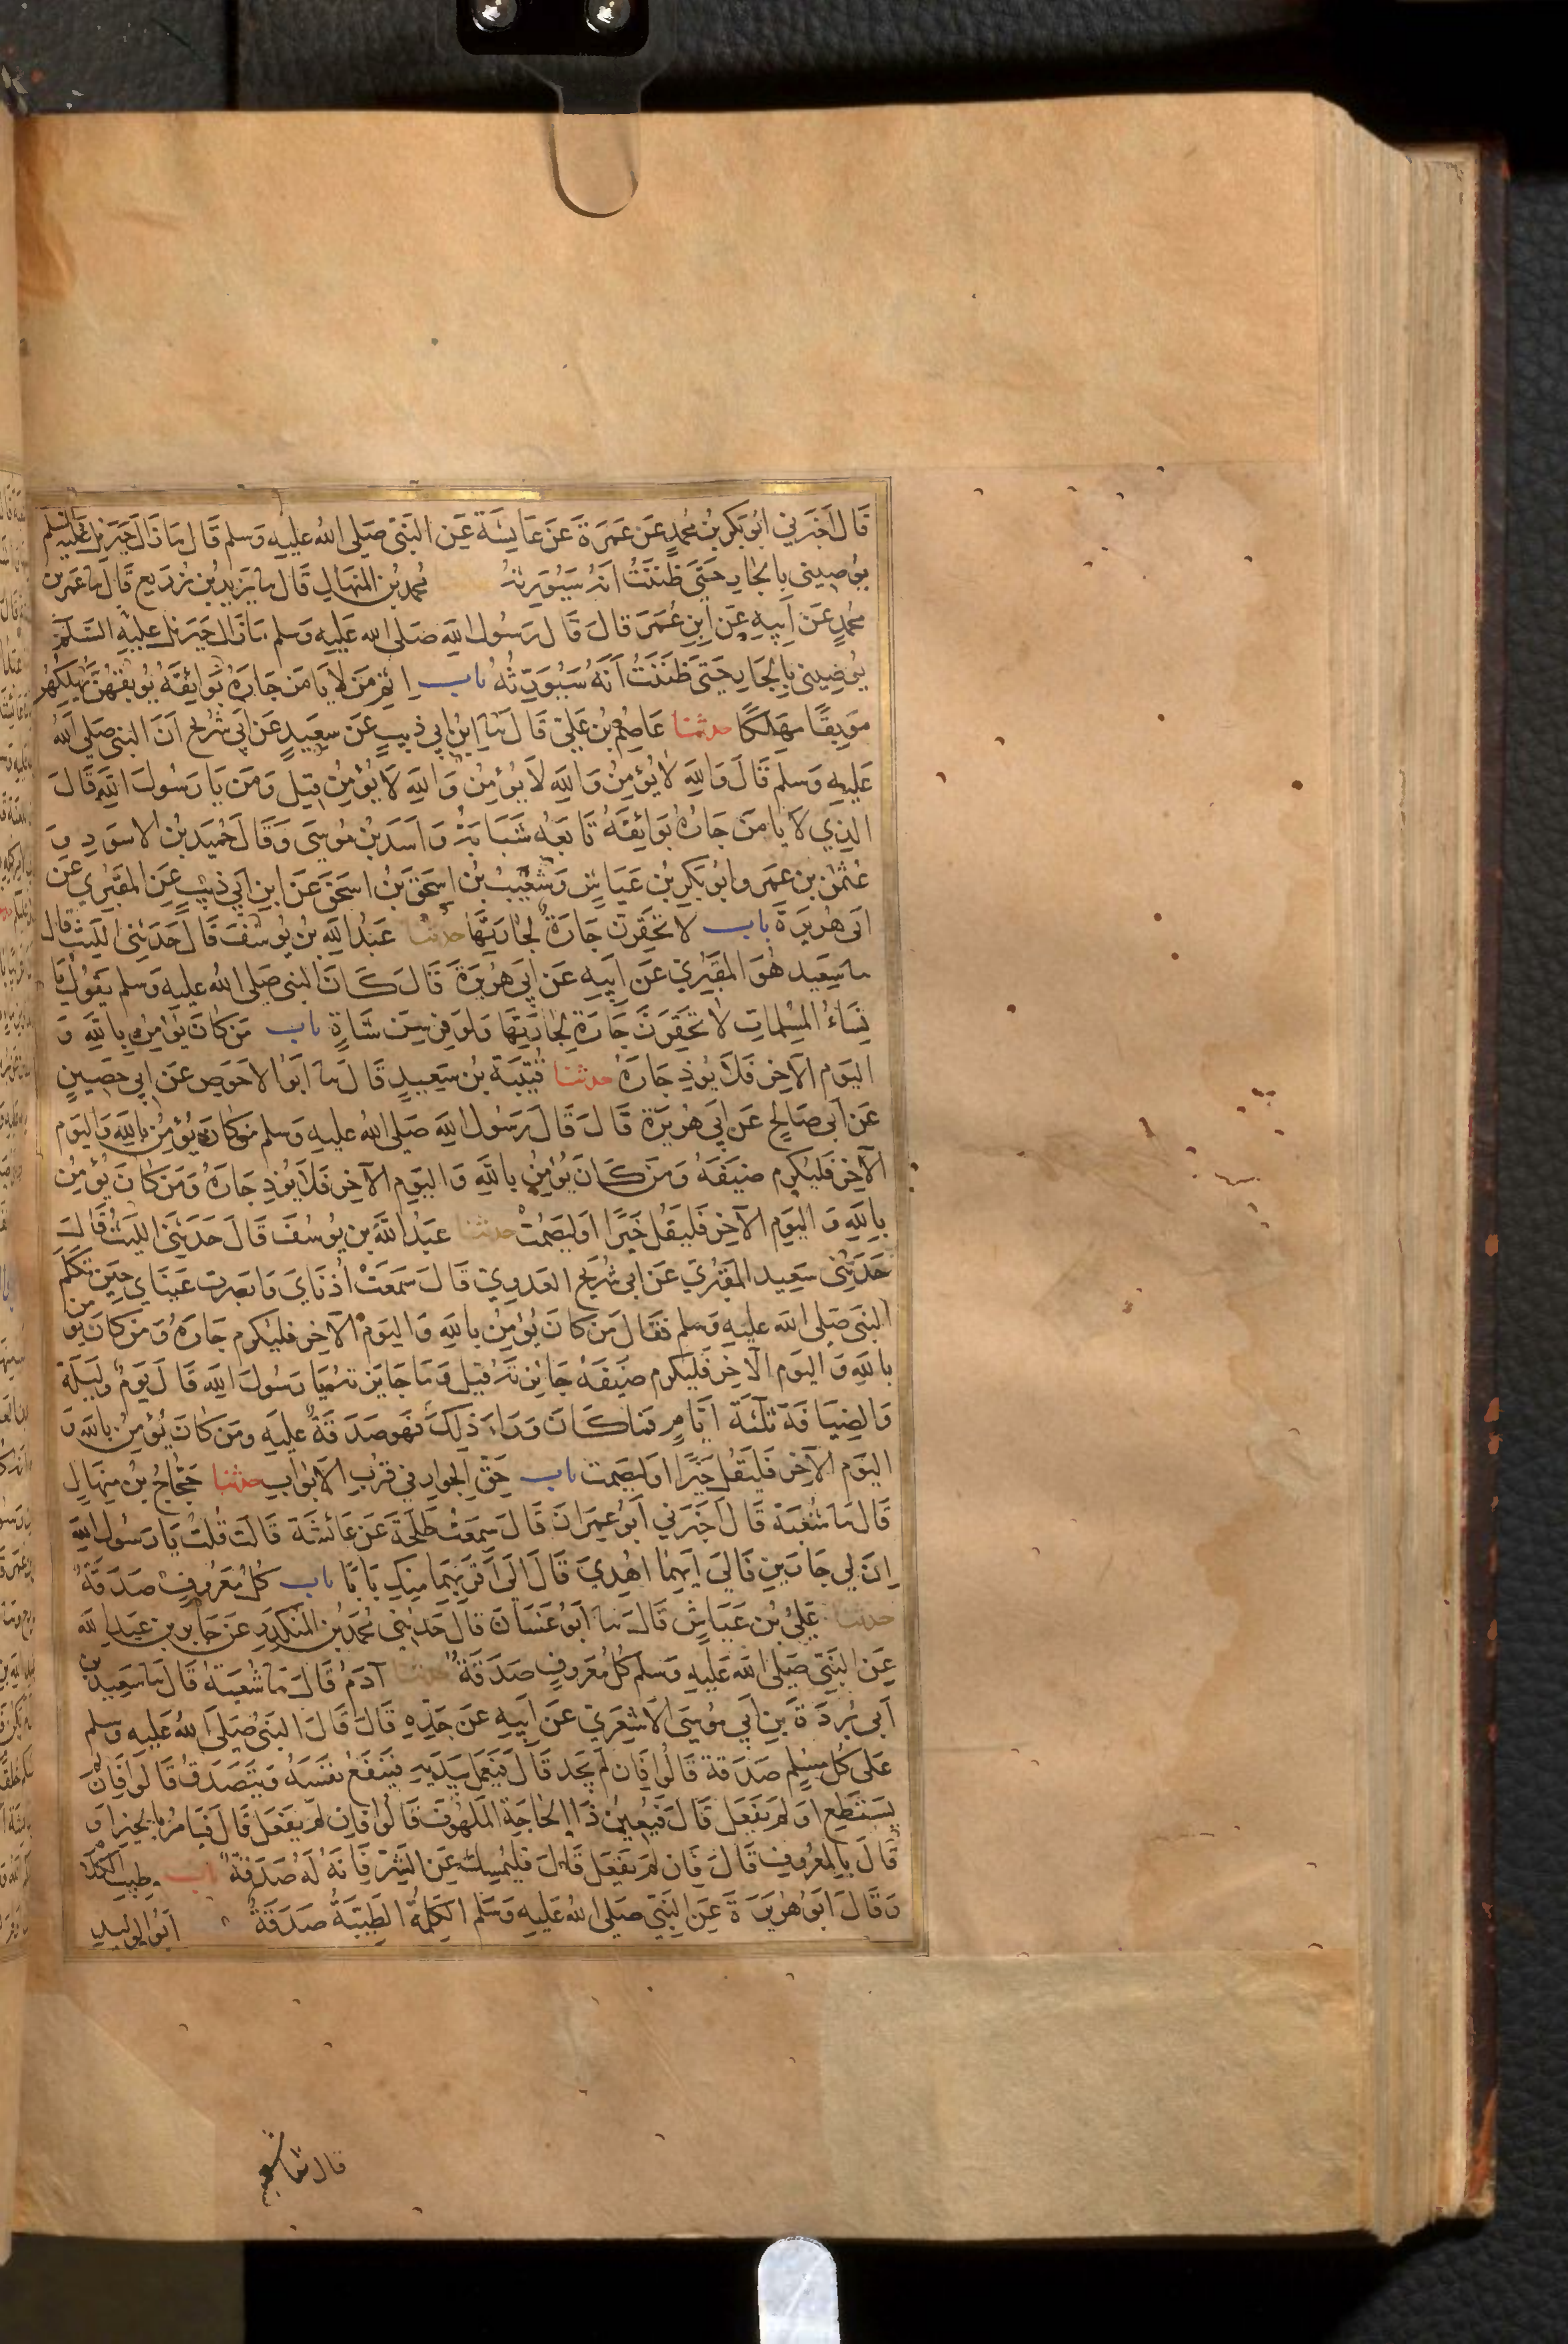 قَالَ اَخْبَرَنِي ابُوبَكْرِ بْنُ مُحمدٍ عَنْ عَمْرَةَ عَنْ عَايِشَةَ عَنِ النَّبِيِّ صَلى اللهُ عليهِ وَسلم قَالَ مَا زَالَ جِبْرَئِيلُ عليه السلم
يُوصِينِي بِالجَارِ حَتَّى ظَنَنْتُ انَهُ سَيُوَرِّثُهُ مُحمدُ بْنُ المِنْهَالِ قَالَ ما يَزِيدُ بْنُ زُرَيعٍ قَالَ ما عُمَرُ بن
محمدٍ عَنْ اَبِيهِ عَنِ ابنِ عُمَرَ قَالَ قَالَ رَسُولُ اللهِ صَلى الله عَليهِ وَسلم مَا زَالَ جِبْرَئِلُ عليهِ السَّلَمُ
يُوصِينِي بِالجَارِ حَتَّى ظَنَنْتُ اَنَهُ سَيُوَرِّثُهُ باب اِثْمِ مَنْ لاَ يَامَنُ جَارُهُ بَوَائِقَهُ يُوبِقْهُنَّ يُهْلِكْهُنَّ
مَوْبِقًا مَهْلَكًا حدثنا عَاصِمُ بْنُ عَلِيٍّ قَالَ نا ابْنُ ابِي ذِيبٍ عَنْ سَعِيدٍ عَنْ اَبِي شُرَيْحٍ اَنَّ النبي صَلى اللهُ
عَليهِ وَسلم قَالَ وَاللهِ لاَ يُؤمِنُ وَاللهِ لاَ يُؤمِنُ وَاللهِ لاَ يُؤْمِنُ قِيلَ وَمَنْ يَا رَسُولَ اللهِ قَالَ
الذِي لاَ يَامَنُ جَارُهُ بَوَائِقَهُ تَابَعَهُ شَبَابَةُ وَاَسَدُ بْنُ مُوسَى وَقَالَ حُمَيْدُ بْنُ الاسوَدِ وَ
عُثْمٰنُ بنُ عُمَرَ وابُوبَكْرِ بْنُ عَيَّاشٍ وَشُعَيْبُ بْنُ اسحَقَ بْنُ اسحَقَ عَنِ ابنِ اَبِي ذِيبٍ عَنِ المَقْبُرِي عَنْ
اَبِي هُرَيرَةَ باب لا تَحْقِرَنَّ جَارَةٌ لِجَارَتِهَا حدثنا عَبْدُ اللهِ بْنُ يُوسُفَ قَالَ حَدَثَنِي اللَّيْثُ قال
ما سَعِيد هُوَ المَقْبُرِيُ عَنْ اَبِيهِ عَنْ اَبِي هُرَيْرَةَ قَالَ كَانَ النبيُ صَلى اللهُ عليهِ وَسلم يَقُولُ يَا
نِسَاءُ المُسْلِمَاتِ لاَ تَحْقِرَنَّ جَارَةٌ لِجَارَتِهَا وَلَوْ فِرْسِنَ شَاةٍ باب مَنْ كَانَ يُوْمِنُ بِاللهِ وَ
اليَوْمِ الآخِرِ فَلاَ يُوذِ جَارَهُ حدثنا قُتَيْبَةُ بْنُ سَعِيدٍ قَالَ نا اَبُوا لاحْوَصِ عَنْ ابِي حَصِينٍ
عَنْ اَبِي صَالِحٍ عَنْ اَبِي هُرَيْرَةَ قَالَ قَالَ رَسُولُ اللهِ صَلى اللهُ عليهِ وَسلم مَنْ كَانَ يُؤْمِنُ بِاللهِ وَاليَومِ
الآخِرِ فَليُكْرِمْ ضَيْفَهُ وَمَنْ كَانَ يُؤمِنُ بِاللهِ وَاليَومِ الآخِرِ فَلاَ يُوذِ جَارَهُ وَمَنْ كَانَ يُؤمِنُ
بِاللهِ وَ اليَوْمِ الآخِرِ فَليَقُلْ خَيْرًا اَوْ لِيَصْمُتْ حدثنا عَبْدُ اللهِ بنُ يُوسُفَ قَالَ حَدَثَنَِي اللَّيْثُ قَالَ
حَدَثَنِي سَعِيد المَقْبُرِيَ عَنْ ابِي شُرَيْحٍ العَدَوِيِ قَالَ سَمِعَتْ اُذُنَايَ وَابصرت عَيْنَايَ حِينَ تَكَلَّمَ
النَبِيُ صَلى الله عليهِ وَسلم فَقَالَ مَنْ كَانَ يُوْمِنُ بِاللهِ وَاليَوْمِ الآخِرِ فليُكْرِم جَارَهُ وَمَنْ كَانَ يؤمن
بِاللهِ وَ اليَوْمِ الآخِرِ فَليُكْرِم ضَيْفَهُ جَائِزَتَهُ قِيلَ وَمَا جَائِزَتُهُ يَا رَسُولَ اللهِ قَالَ يَوْمٌ ولَيلَةٌ
وَالضِيَافَةُ ثَلثَةَ ايَّامٍ فَمَا كَانَ وَرَاءَ ذَلِكَ فَهوَ صَدَقَةٌ عليهِ ومَنْ كَانَ يُؤمِنُ باللهِ وَ
اليَوْمِ الآخِرِ فَليَقُلْ خَيْرًا اَوْ لِيَصمت باب حَقِّ الجِوَارِ فِي قُرْبِ الاَبْوَابِ حدثنا حَجَّاجُ بْنُ مِنهَالٍ
قَالَ ما شُعْبَةُ قَالَ اَخبَرَنِي اَبُو عِمرَانَ قَالَ سَمِعْتُ طَلحَةَ عَنْ عَائشَةَ قَالَت قُلتُ يَا رَسُولَ اللهِ
اِنَّ لِي جَارَينِ فَاِلَى اَيِهِمَا اهْدِي قَالَ اِلَى اَقرَبِهِمَا مِنكِ بَابًا باب كُلُ مَعْرُوفٍ صَدَقَةٌ
حدثنا عَلِيُّ بْنُ عَيَاشٍ قَالَ نا اَبُو غَسَانَ قَالَ حَدَثَنِي مُحمَدُ بْنُ المُنْكَدِرِ عَنْ جَابِرِ بن عَبْدِ الله
عَنِ النَبِيِّ صَلى الله عَليهِ وَسلم كُلُ مَعْرُوفٍ صَدَقَةٌ حدثنا آدَمُ قَالَ ما شُعْبَةُ قَالَ ما سَعِيدُ بن
اَبِي بُردَةَ بنِ اَبِي مُوسَى الاَشعَرِيِ عَنْ اَبِيهِ عَنْ جَدِهِ قَالَ قَالَ النبيُ صَلى اللهُ عَليهِ وسلم
عَلى كُلِ مُسْلِمٍ صَدَقةٌ قَالُوا فَاِن لَم يَجِد قَالَ فَيَعْمَلُ بِيَدَيهِ فَيَنْفَعُ نَفسَهُ وَيَتَصَدَقُ قَالُوا فَاِنْ لم
يَستَطِع اَو لم يَفْعَل قَالَ فَيُعِينُ ذَا الحَاجَةِ المَلهُوفَ قَالُوا فَاِن لَم يَفعَل قَالَ فَيَامُرُ بِالخَيرِ اَو
قَالَ بِالمَعْرُوفِ قَالَ فَاِن لَم يَفعَل قَالَ فَليُمسِك عَنِ الشَرِّ فَاِنَهُ لَهُ صَدَقَةٌ باب طِيبِ الكَلَامِ
وَقَالَ اَبُو هُرَيرَةَ عَنِ النَبِيِّ صَلى اللهُ عَليهِ وَسَلم الكَلِمَةُ الطَيِّبَةُ صَدَقَةٌ اَبُو الوليدِ
قال ثنا شعبة